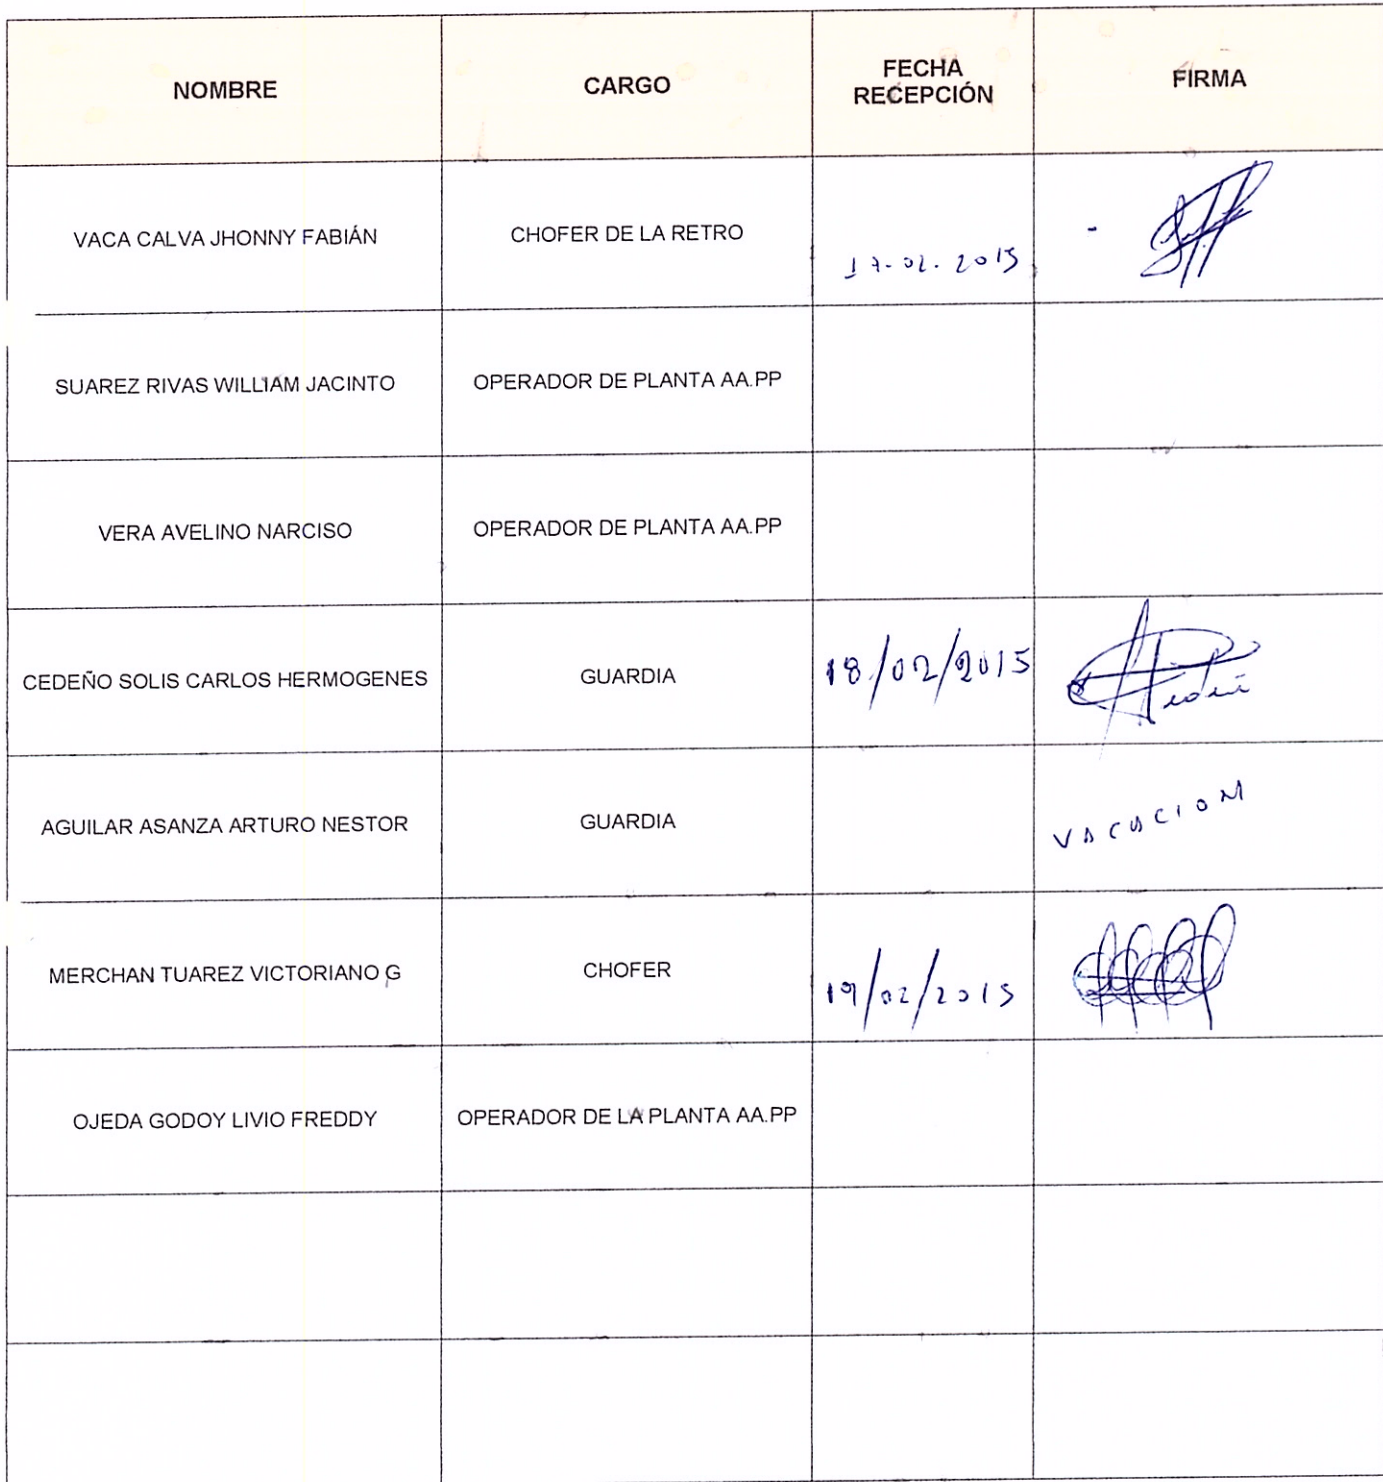 NOMBRE
CARGO
FECHA
RECEPCIÓN
FIRMA
VACA CALVA JHONNY FABIÁN
CHOFER DE LA RETRO
17-02-2015
SUAREZ RIVAS WILLIAM JACINTO
OPERADOR DE PLANTA AA.PP
VERA AVELINO NARCISO
OPERADOR DE PLANTA AA.PP
CEDEÑO SOLIS CARLOS HERMOGENES
GUARDIA
18/02/2015
AGUILAR ASANZA ARTURO NESTOR
GUARDIA
VACACION
MERCHAN TUAREZ VICTORIANO G
CHOFER
19/02/2015
OJEDA GODOY LIVIO FREDDY
OPERADOR DE LA PLANTA AA.PP